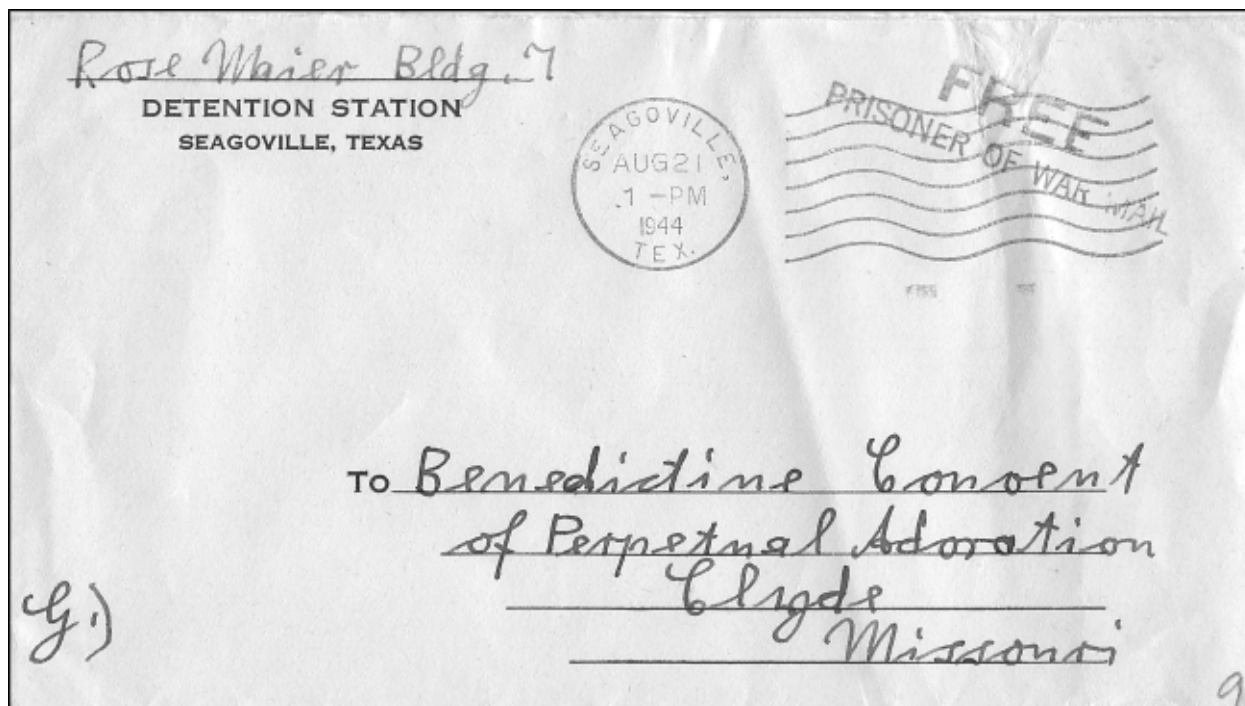 Rose Maier Bldg. 7
DETENTION STATION
SEAGOVILLE, TEXAS
SEAGOVILLE,
AUG 21
1 - PM
1944
TEX.
FREE
PRISONER OF WAR MAIL
TO Benedictine Convent
of Perpetual Adoration
Clyde
Missouri
G.)
9